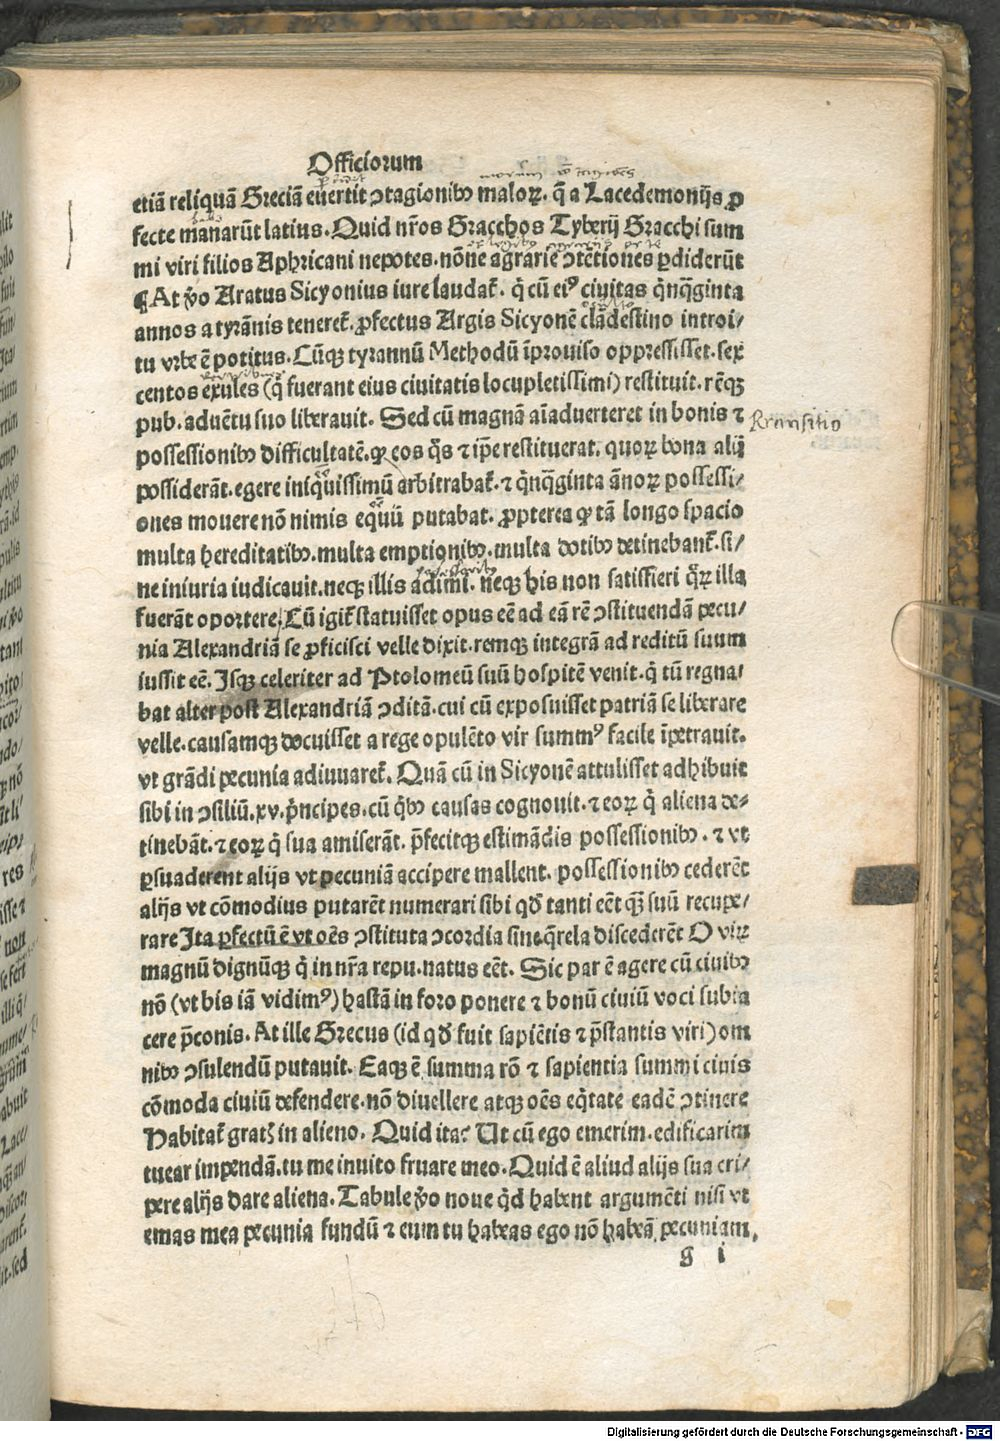 Officiorum
etiā reliquā Greciā euertit ↄtagionibꝰ maloꝝ. q̄ a Lacedemonijs ꝓ
fecte manarūt latius. Quid nr̄os Gracchos Tyberij Gracchi sum
mi viri filios Aphricani nepotes. nōne agrarie ↄtētiones ꝑdiderūt
¶ At ṽo Aratus Sicyonius iure laudat᷑. q̄ cū eiꝰ ciuitas q̄nq̄ginta
annos a tyrānis teneret᷑. ꝓfectus Argis Sicyonē clādestino introi/
tu vrbe ē potitus. Cūqꝫ tyrannū Methodū īprouiso oppressisset. sex
centos exules (q̄ fuerant eius ciuitatis locupletissimi) restituit. rēqꝫ
pub. aduētu suo liberauit. Sed cū magnā aīaduerteret in bonis ⁊
Transitio
possessionibꝰ difficultatē. ꝙ eos q̄s ⁊ ip̄e restituerat. quoꝝ bona alij
possiderāt. egere iniq̄uissimū arbitrabat᷑. ⁊ q̄nq̄ginta ānoꝝ possessi/
ones mouere nō nimis eq̄uū putabat. ꝓpterea ꝙ tā longo spacio
multa hereditatibꝰ. multa emptionibꝰ. multa dotibꝰ detinebant᷑. si/
ne iniuria iudicauit. neqꝫ illis adimi. neqꝫ his non satisfieri q̄ꝝ illa
fuerāt oportere. Cū igit᷑ statuisset opus eē ad eā rē ↄstituendā pecu/
nia Alexandriā se ꝓficisci velle dixit. remqꝫ integrā ad reditū suum
iussit eē. Isqꝫ celeriter ad Ptolomeū suū hospitē venit. q̄ tū regna/
bat alter post Alexandriā ↄditā. cui cū exposuisset patriā se liberare
velle. causamqꝫ docuisset a rege opulēto vir summꝰ facile īpetrauit.
vt grādi pecunia adiuuaret᷑. Quā cū in Sicyonē attulisset adhibuit
sibi in ↄsiliū. xv. p̄ncipes. cū q̄bꝰ causas cognouit. ⁊ eoꝝ q̄ aliena de-
tinebāt. ⁊ eoꝝ q̄ sua amiserāt. p̄fecitqꝫ estimādis possessionibꝰ. ⁊ vt
ꝑsuaderent alijs vt pecuniā accipere mallent. possessionibꝰ cederēt
alijs vt cōmodius putarēt numerari sibi qđ tanti eēt q̄ꝫ suū recupe/
rare Ita ꝑfectū ē vt oēs ↄstituta ↄcordia sine q̄rela discederēt O virꝝ
magnū dignūqꝫ q̄ in nr̄a repu. natus eēt. Sic par ē agere cū ciuibꝰ
nō (vt bis iā vidimꝰ) hastā in foro ponere ⁊ bonū ciuiū voci subia
cere p̄conis. At ille Grecus (id qđ fuit sapiētis ⁊ p̄stantis viri) om
nibꝰ ↄsulendū putauit. Eaqꝫ ē summa rō ⁊ sapientia summi ciuis
cōmoda ciuiū defendere. nō diuellere atqꝫ oēs eq̄tate eadē ↄtinere
Habitat᷑ gratꝭ in alieno. Quid ita? Ut cū ego emerim. edificarim
tuear impendā. tu me inuito fruare meo. Quid ē aliud alijs sua eri/
pere alijs dare aliena. Tabule ṽo noue q̄d habent argumēti nisi vt
emas mea pecunia fundū ⁊ eum tu habeas ego nō habeā pecuniam.
g i
Digitalisierung gefördert durch die Deutsche Forschungsgemeinschaft - DFG